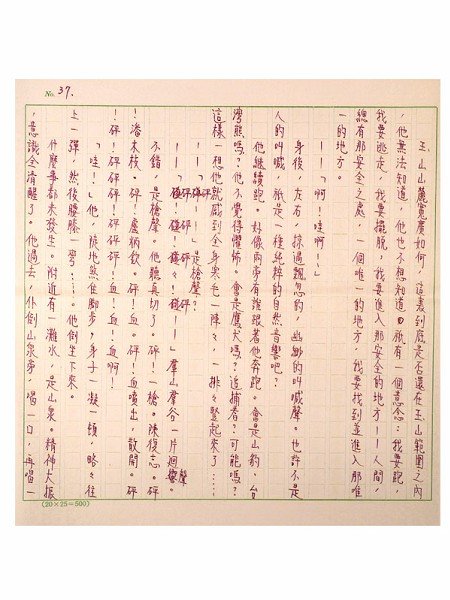 No. 37.
玉山山麓寬廣如何,這裏到底是否還在玉山範圍之內
,他無法知道,他也不想知道。祇有一個意念:我要跑,
我要逃走,我要擺脫,我要進入那安全的地方——人間,
總有那安全之處,一個唯一的地方,我要找到並進入那唯
一的地方。
——「啊!哇啊!」
身後,左右,掠過飄忽的,幽渺的叫喊聲。也許不是
人的叫喊,祇是一種純粹的自然音響吧?
他繼續跑。好像兩旁有誰跟著他奔跑。會是山豹,台
灣熊嗎?他不覺得懼怖。會是鷹犬嗎?追捕者?可能嗎?
這樣一想他就感到全身寒毛一陣々,一排々豎起來了……
——「砰!砰砰!」是槍聲?
——「砰!砰!砰々!砰——」羣山羣谷一片迴聲響。
不錯,是槍聲。他聽真切了。砰!一槍。陳復志。砰
!潘木枝。砰!盧炳欽。砰!血!砰!血噴出,散開。砰
!砰!砰砰!砰砰!砰!血!血!血啊!
「哇!」他,猛地煞住腳步,身子一凝一頓,略々往
上一彈,然後腰膝一彎……他倒坐下來。
什麼事都未發生。附近有一灘水,是山泉。精神大振
,意識全清醒了。他過去,仆倒山泉旁,喝一口,再喝一
(20×25=500)